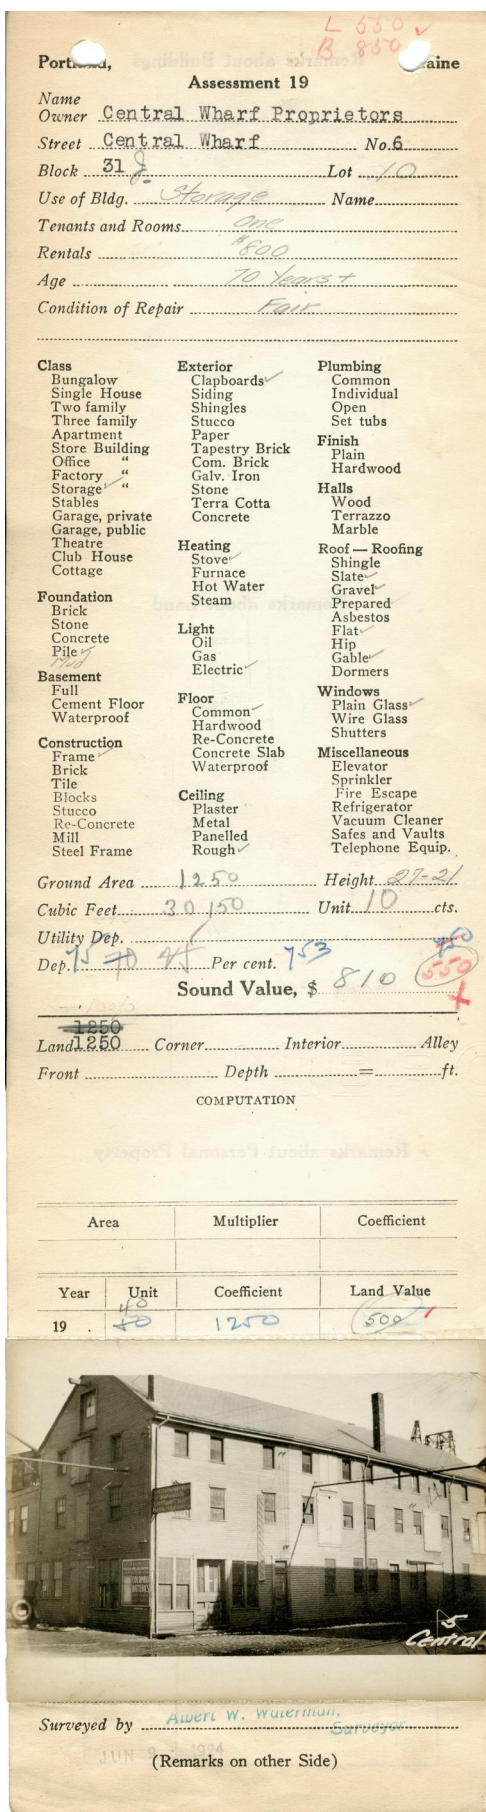 L 550 ✓
B 850
Portland, Maine
Assessment 19
Name
Owner Central Wharf Proprietors
Street Central Wharf No. 6
Block 31 J. Lot 10
Use of Bldg. Storage Name
Tenants and Rooms One
Rentals $800
Age 70 Years +
Condition of Repair Fair
Class
Bungalow
Single House
Two family
Three family
Apartment
Store Building
Office "
Factory "
Storage ✓ "
Stables
Garage, private
Garage, public
Theatre
Club House
Cottage
Foundation
Brick
Stone
Concrete
Pile ✓
Mud
Basement
Full
Cement Floor
Waterproof
Construction
Frame ✓
Brick
Tile
Blocks
Stucco
Re-Concrete
Mill
Steel Frame
Exterior
Clapboards ✓
Siding
Shingles
Stucco
Paper
Tapestry Brick
Com. Brick
Galv. Iron
Stone
Terra Cotta
Concrete
Heating
Stove ✓
Furnace
Hot Water
Steam
Light
Oil
Gas
Electric ✓
Floor
Common ✓
Hardwood
Re-Concrete
Concrete Slab
Waterproof
Ceiling
Plaster
Metal
Panelled
Rough ✓
Plumbing
Common
Individual
Open
Set tubs
Finish
Plain
Hardwood
Halls
Wood
Terrazzo
Marble
Roof — Roofing
Shingle
Slate ✓
Gravel ✓
Prepared
Asbestos
Flat ✓
Hip
Gable ✓
Dormers
Windows
Plain Glass ✓
Wire Glass
Shutters
Miscellaneous
Elevator
Sprinkler
Fire Escape
Refrigerator
Vacuum Cleaner
Safes and Vaults
Telephone Equip.
Ground Area 1250 Height 27-21
Cubic Feet 30150 Unit 10 cts.
Utility Dep.
Dep. 75 70 45 Per cent. 753
550
Sound Value, $ 810
1250
Land 1250 Corner Interior Alley
Front Depth = ft.
COMPUTATION
Area Multiplier Coefficient
Year Unit Coefficient Land Value
40
19 . 50 1250 500
5
Central
Surveyed by Albert W. Waterman,
Surveyor
(Remarks on other Side)